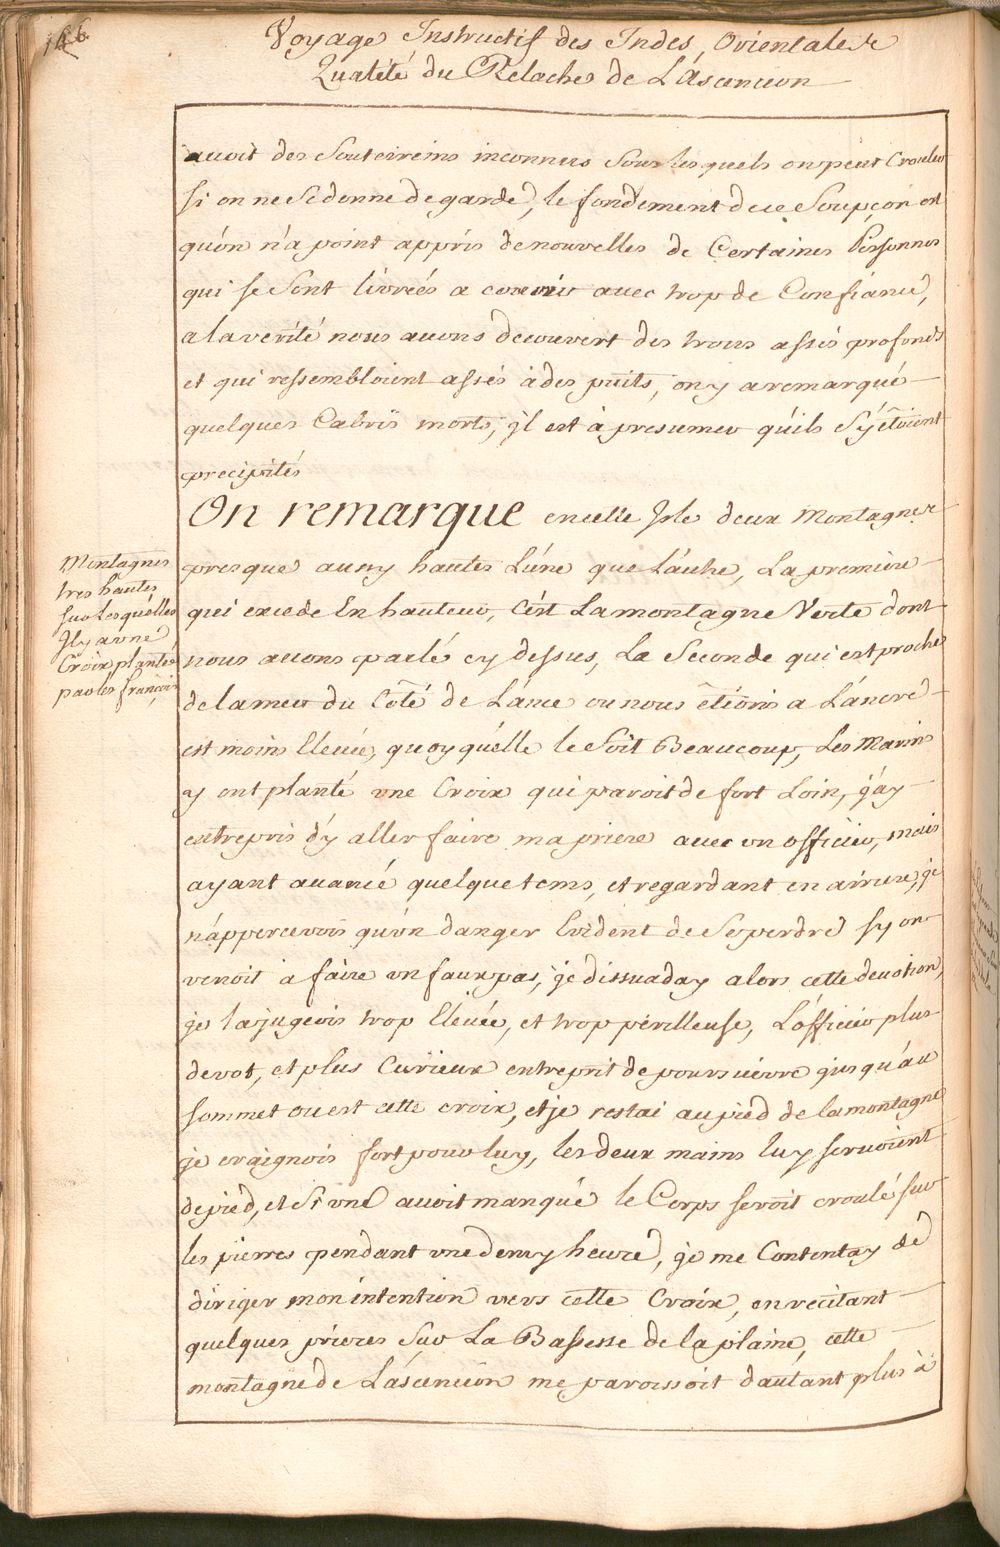 146
Voyage Instructif des Indes, Orientales
Qualité du Relache de L'Ascencion
auoit des Souteireins inconnus Sous lesquels on peut Crouler
si on ne Se donne de garde, le fondement de ce Soupçon est
qu'on n'a point appris de nouvelles de Certaines Personnes
qui se Sont livreés a courir auec trop de Confiance,
a la verité nous auons decouvert des trous assés profonds
et qui ressembloient assés à des puits, on y a remarqué
quelques Cabris morts, jl est à presumer qu'ils S'y étoient
precipités
On remarque en cette Isle deux Montagnes
Montagnes
tres hautes
sur Lesquelles
Jl y a vne
Croix plantée
par les françois
presque aussy hautes L'une que L'autre, La premiere
qui excede En hauteur, C'est La montagne Verte dont
nous auons parlé cy dessus, La Seconde qui est proche
de la mer du Côté de L'ance ou nous étions a L'ancre
est moins Eleuée, quoy qu'elle le Soit Beaucoup, Les Marins
y ont planté vne Croix qui paroit de fort Loin, j'ay
entrepris d'y aller faire ma priere auec vn officier, mais
ayant auancé quelque tems, et regardant en arriere, je
n'appercevois qu'vn danger Evident de Se perdre sy on
venoit a faire vn faux pas, je dissuaday alors cette deuotion,
je La jugeois trop Eleuée, et trop périlleuse, L'officier plus
devot, et plus Curieux entreprit de poursuivre jusqu'au
sommet ou est cette croix, et je restai au pied de la montagne
je craignois fort pour luy, les deux mains luy seruoient
de pied, et Si vne auoit manqué le Corps seroit croulé sur
les pierres pendant vne demy heure, je me Contentay de
diriger mon intention vers cette Croix, en recitant
quelques prieres Sur La Bassesse de la plaine, cette
montagne de L'ascencion me paroissoit d'autant plus à